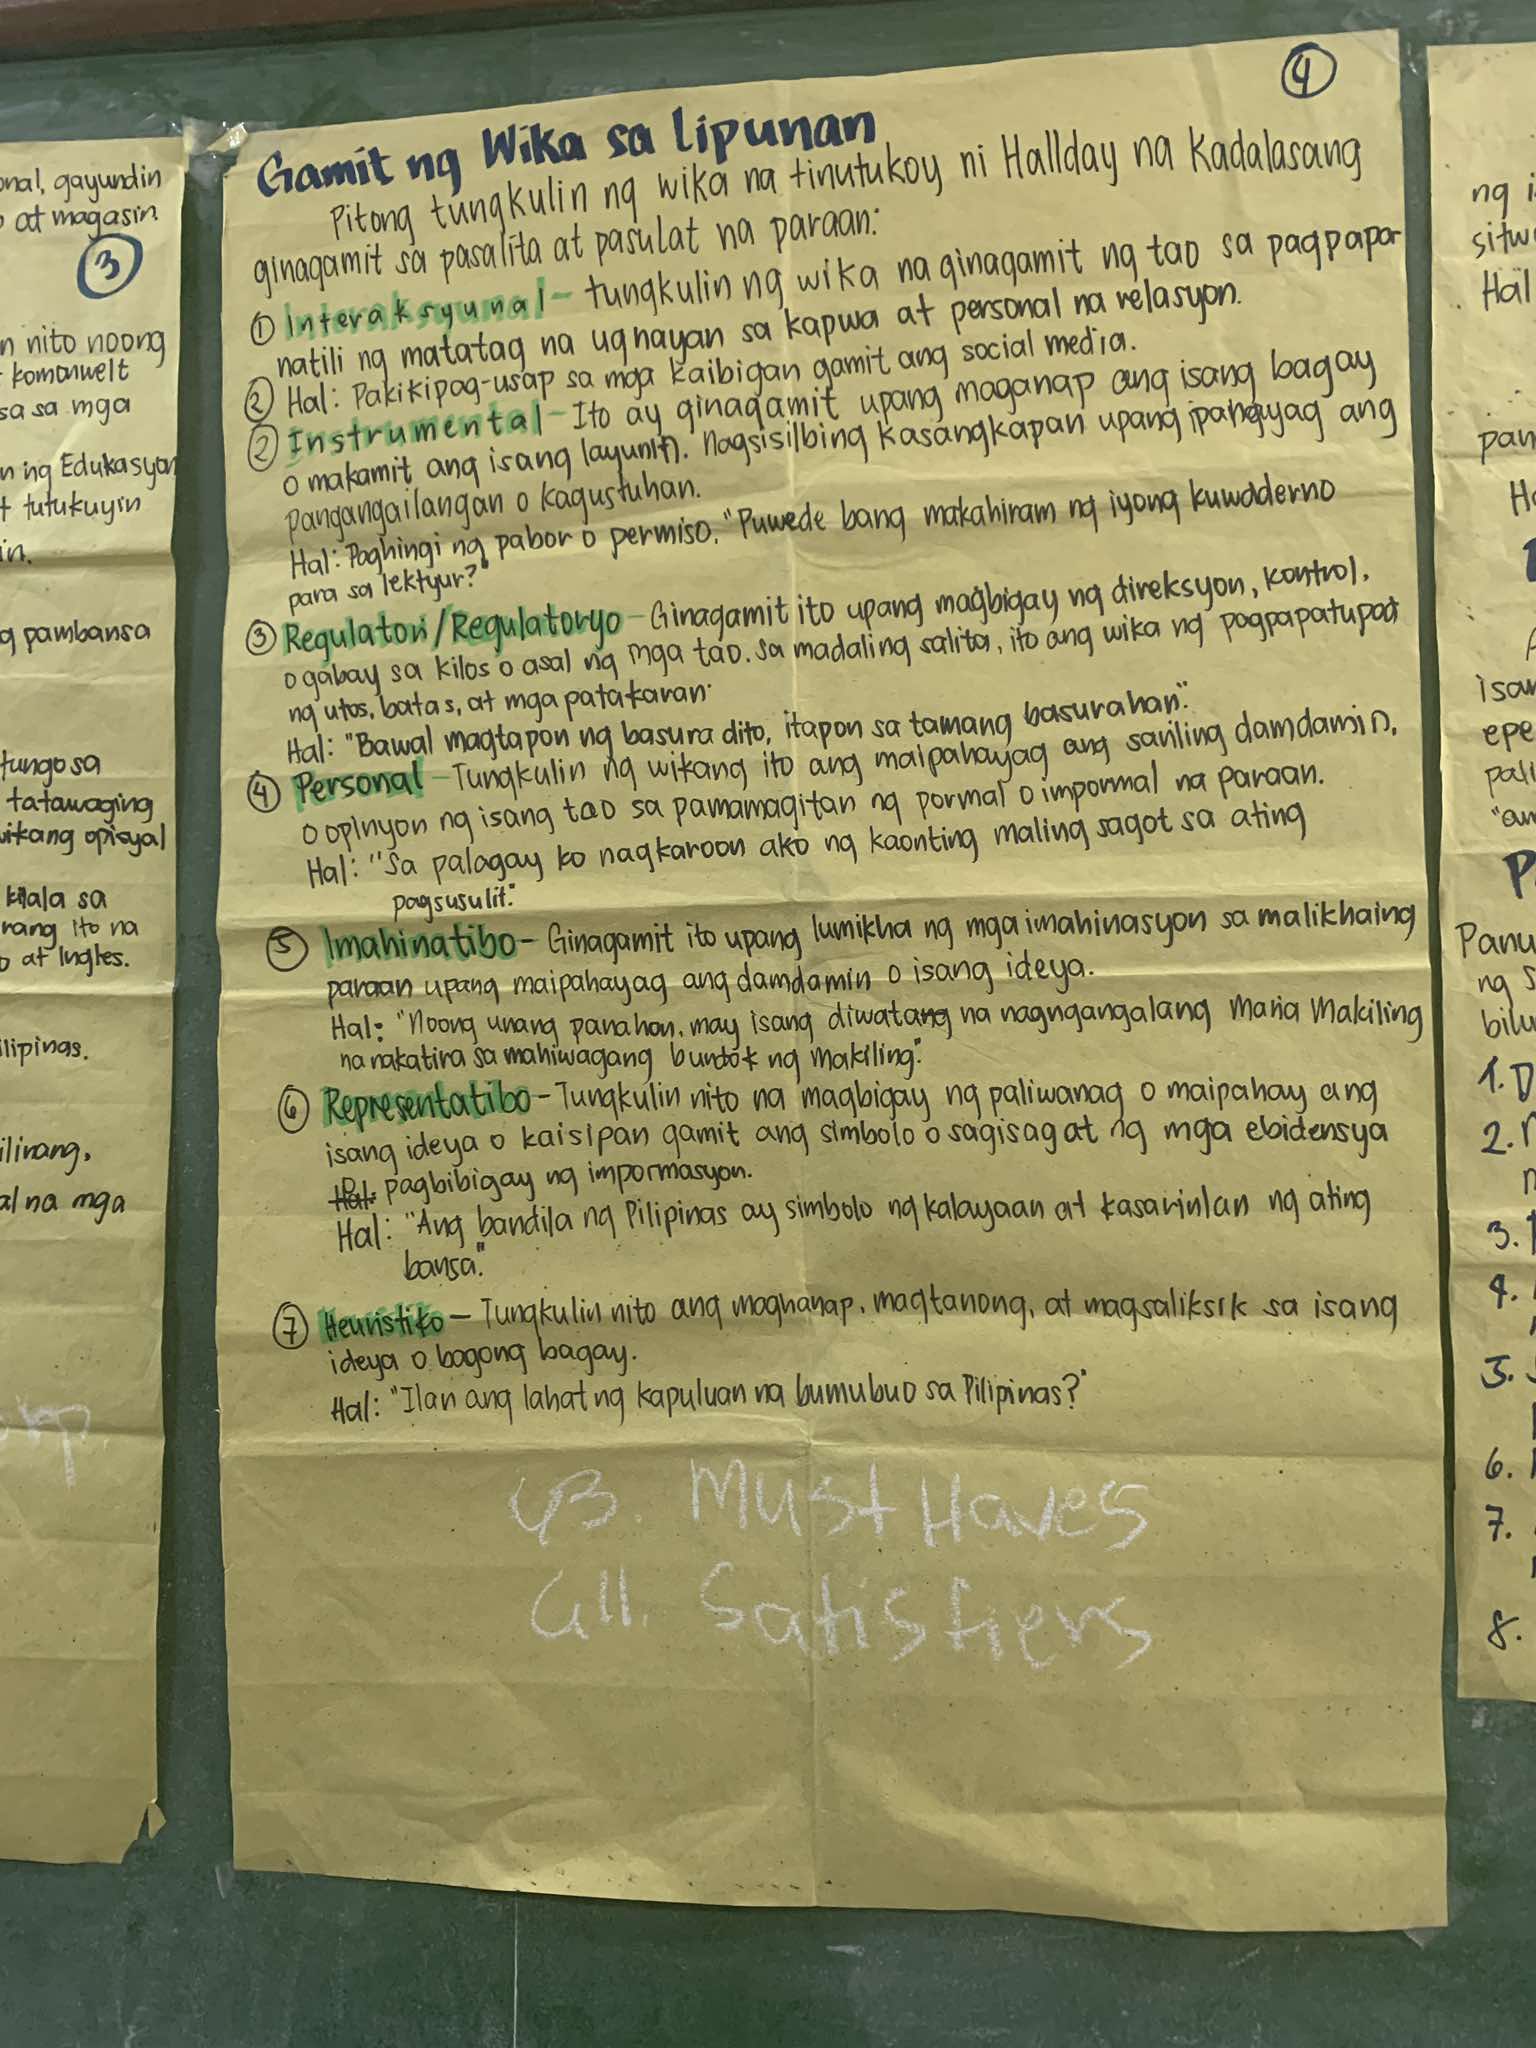 onal, gayundin
o at magasin
3
n nito noong
t komonwelt
sa sa mga
n ng Edukasyon
t tutukuyin
in.
g pambansa
tungo sa
tatawaging
wikang opisyal
kilala sa
rang ito na
o at Ingles.
ilipinas.
ilirang,
al na mga
4
Gamit ng Wika sa lipunan
Pitong tungkulin ng wika na tinutukoy ni Hallday na Kadalasang
ginagamit sa pasalita at pasulat na paraan:
① Interaksyunal - tungkulin ng wika na ginagamit ng tao sa pagpapa
natili ng matatag na ugnayan sa kapwa at personal na relasyon.
② Hal: Pakikipag-usap sa mga kaibigan gamit ang social media.
② Instrumental - Ito ay ginagamit upang maganap ang isang bagay
o makamit ang isang layunin. Nagsisilbing kasangkapan upang ang
pangangailangan o kagustuhan.
Hal: Paghingi ng pabor o permiso. "Puwede bang makahiram ng iyong kuwaderno
para sa lektyur?"
③ Regulatori/Regulatoryo - Ginagamit ito upang magbigay ng direksyon, kontrol,
o gabay sa kilos o asal ng mga tao. sa madaling salita, ito ang wika ng pagpapatupad
ng utos, batas, at mga patakaran.
Hal: "Bawal magtapon ng basura dito, itapon sa tamang basurahan."
④ Personal - Tungkulin ng wikang ito ang maipahayag ang sariling damdamin,
o opinyon ng isang tao sa pamamagitan ng pormal o impormal na paraan.
Hal: "Sa palagay ko nagkaroon ako ng kaonting maling sagot sa ating
pagsusulit."
⑤ Imahinatibo - Ginagamit ito upang lumikha ng mga imahinasyon sa malikhaing
paraan upang maipahayag ang damdamin o isang ideya.
Hal: "Noong unang panahon, may isang diwatang na nagngangalang Maria Makiling
na nakatira sa mahiwagang bundok ng Makiling."
⑥ Representatibo - Tungkulin nito na magbigay ng paliwanag o maipahay ang
isang ideya o kaisipan gamit ang simbolo o sagisag at ng mga ebidensya
Hal: o pagbibigay ng impormasyon.
Hal: "Ang bandila ng Pilipinas ay simbolo ng kalayaan at kasarinlan ng ating
bansa."
⑦ Heuristiko - Tungkulin nito ang maghanap, magtanong, at magsaliksik sa isang
ideya o bagong bagay.
Hal: "Ilan ang lahat ng kapuluan na bumubuo sa Pilipinas?"
43. Must Haves
G11. Satisfiers
ng i
sitw
Hal
pan
Ha
isan
epe
pali
"an
P
Panu
ng s
bilu
1. D
2.
3.
4.
5.
6.
7.
8.